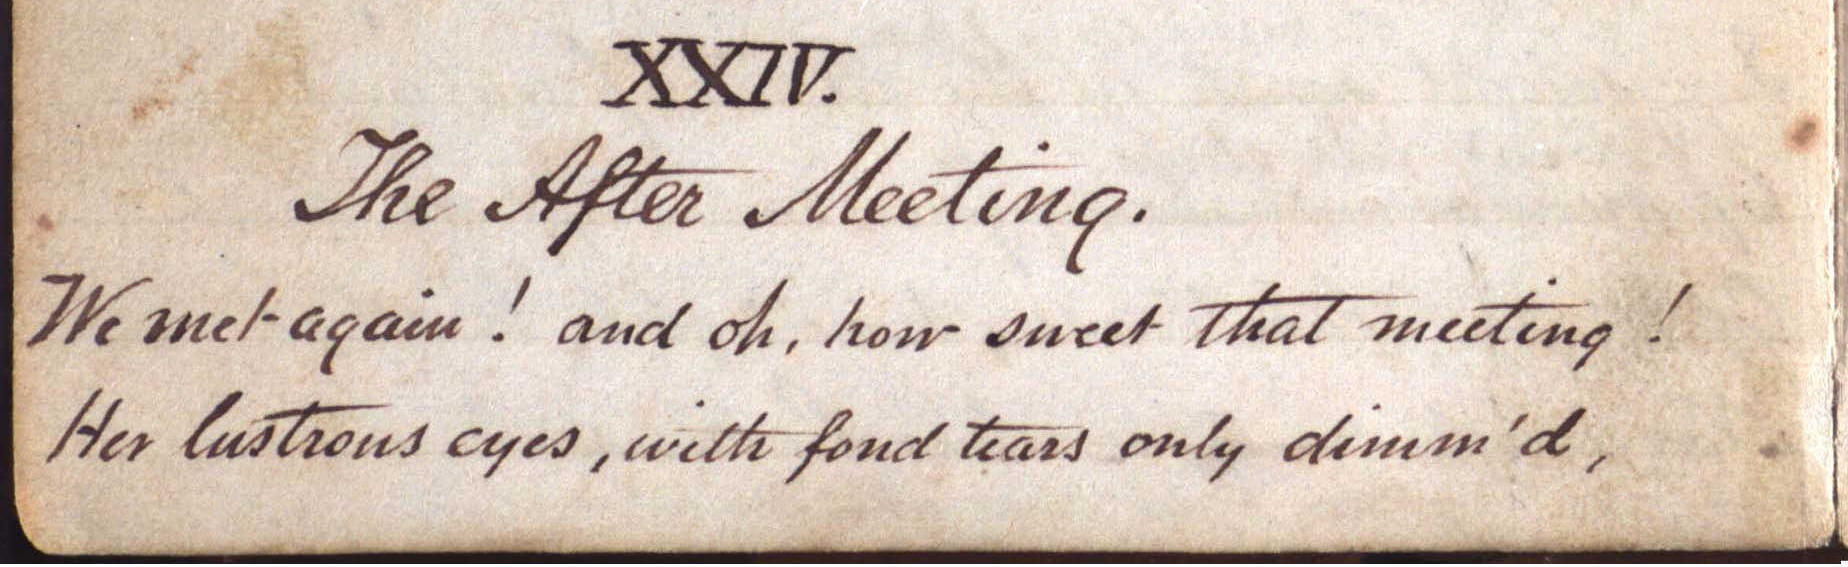 XXIV.
The After Meeting.
We met again! and oh, how sweet that meeting!
Her lustrous eyes, with fond tears only dimm'd,